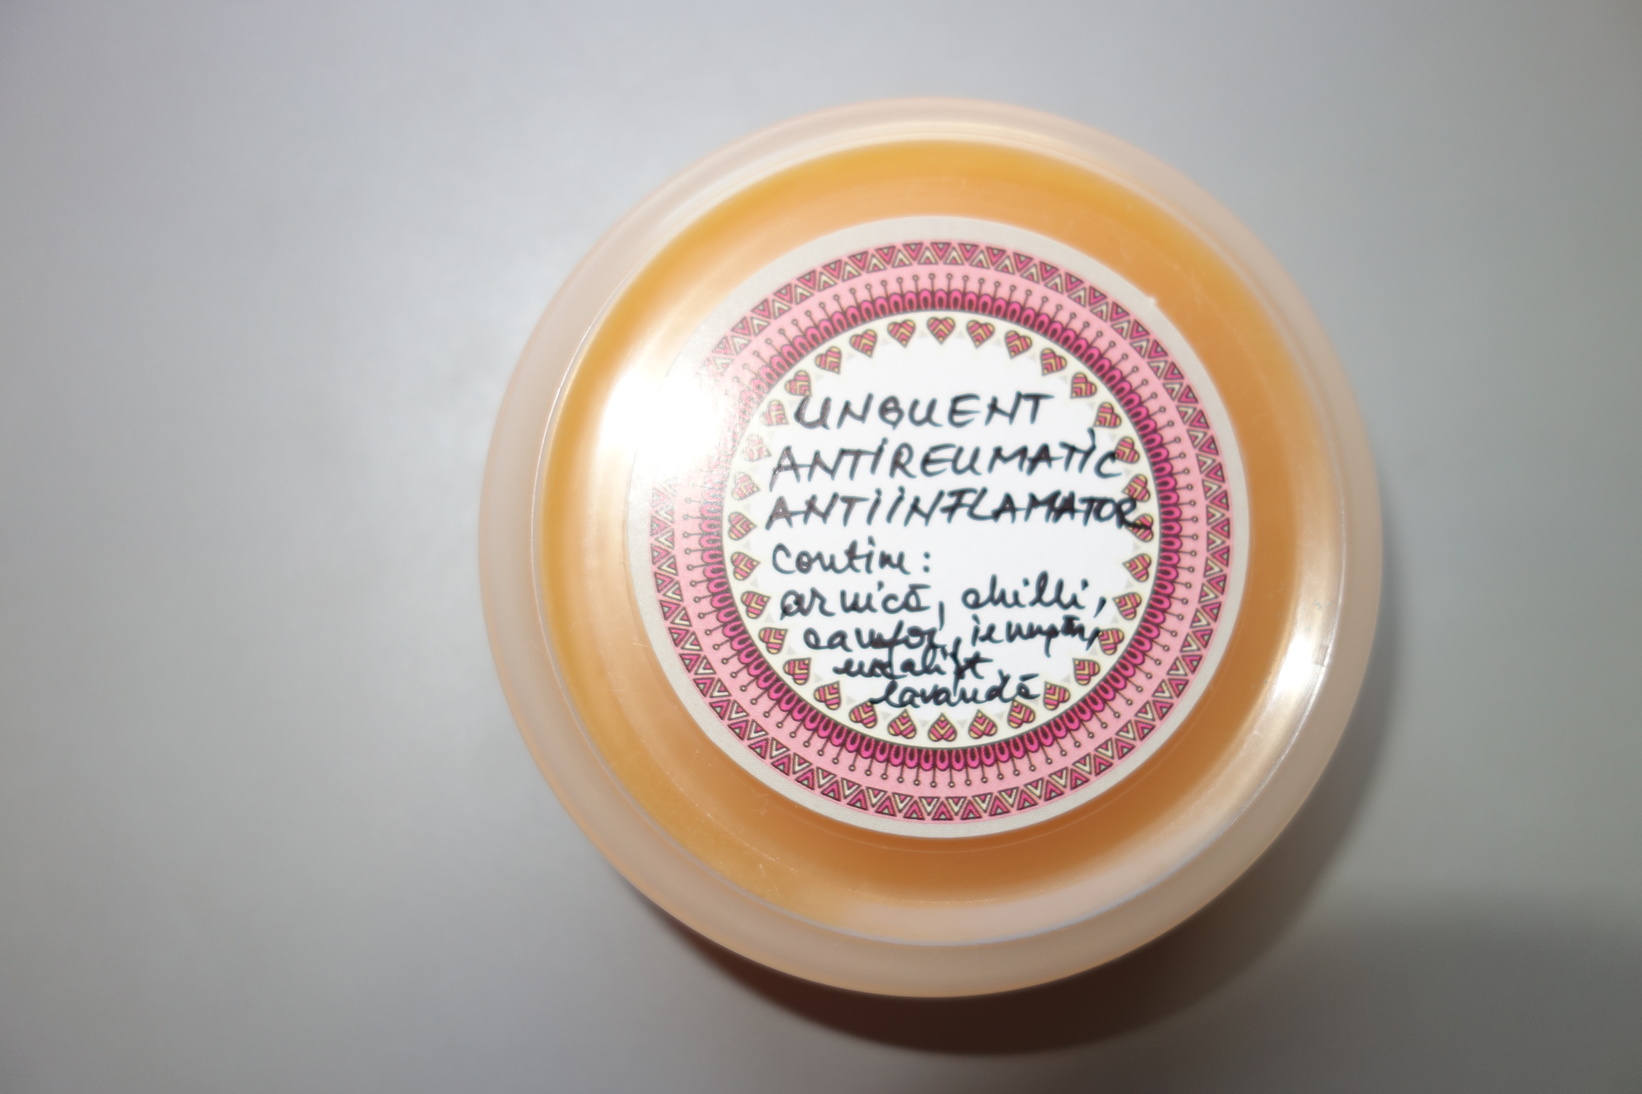 UNGUENT
ANTIREUMATIC
ANTIINFLAMATOR
Contine:
arnică, chilli,
camfor, ienupăr,
eucalipt
lavandă